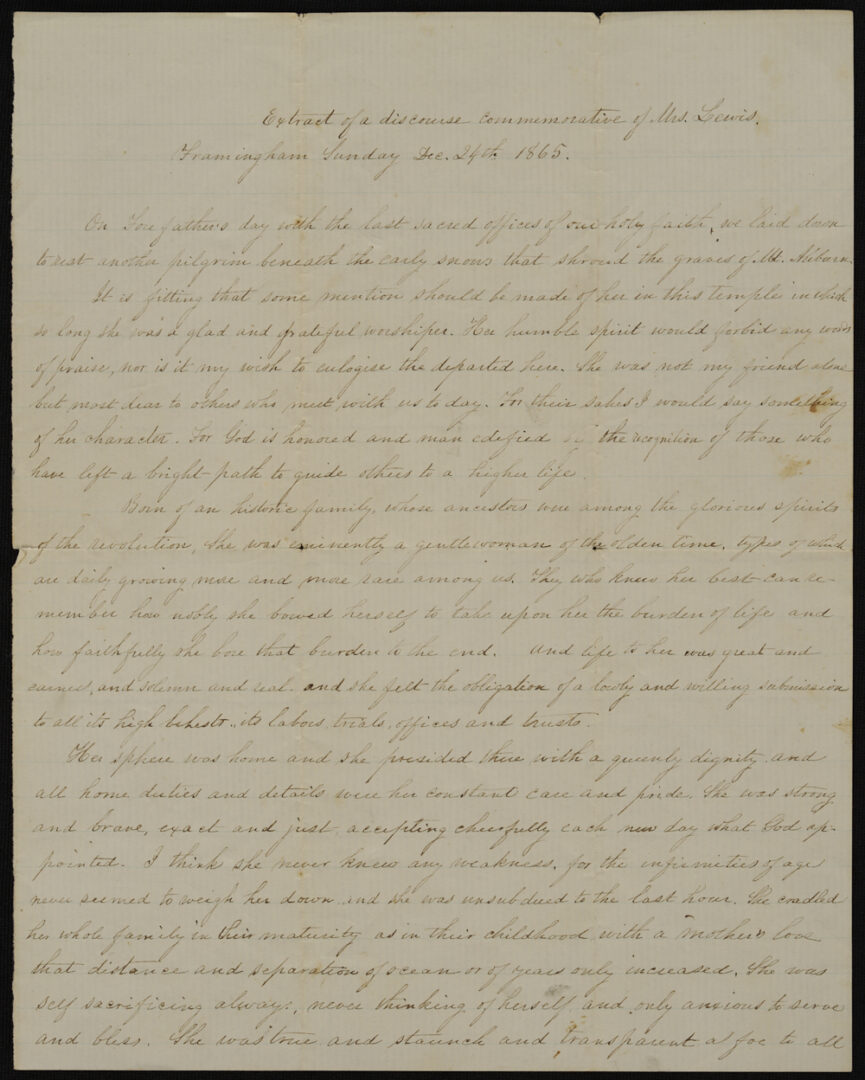 Extract of a discourse commemorative of Mrs. Lewis.
Framingham Sunday Dec. 24th. 1865.
On Forefather's day with the last sacred offices of our holy faith, we laid down
to rest another pilgrim beneath the early snows that shroud the graves of Mt. Auburn.
It is fitting that some mention should be made of her in this temple in which
so long she was a glad and grateful worshiper. Her humble spirit would forbid any words
of praise, nor is it my wish to eulogise the departed here. She was not my friend alone
but most dear to others who meet with us to day. For their sakes I would say something
of her character. For God is honored and man edified by the recognition of those who
have left a bright path to guide others to a higher life.
Born of an historic family, whose ancestors were among the glorious spirits
of the revolution, she was eminently a gentlewoman of the olden time, types of which
are daily growing more and more rare among us. They who knew her best can re-
member how nobly she bowed herself to take upon her the burden of life and
how faithfully she bore that burden to the end. And life to her was great and
earnest, and solemn and real and she felt the obligation of a lowly and willing submission
to all its high behests, its labors, trials, offices and trusts.
Her sphere was home and she presided there with a queenly dignity and
all home duties and details were her constant care and pride. She was strong
and brave, exact and just, accepting cheerfully each new day what God ap-
pointed. I think she never knew any weakness, for the infirmities of age
never seemed to weigh her down and she was unsubdued to the last hour. She cradled
her whole family in their maturity as in their childhood with a mother's love
that distance and separation of ocean or of years only increased. She was
self sacrificing always, never thinking of herself and only anxious to serve
and bless. She was true and staunch and transparent a foe to all